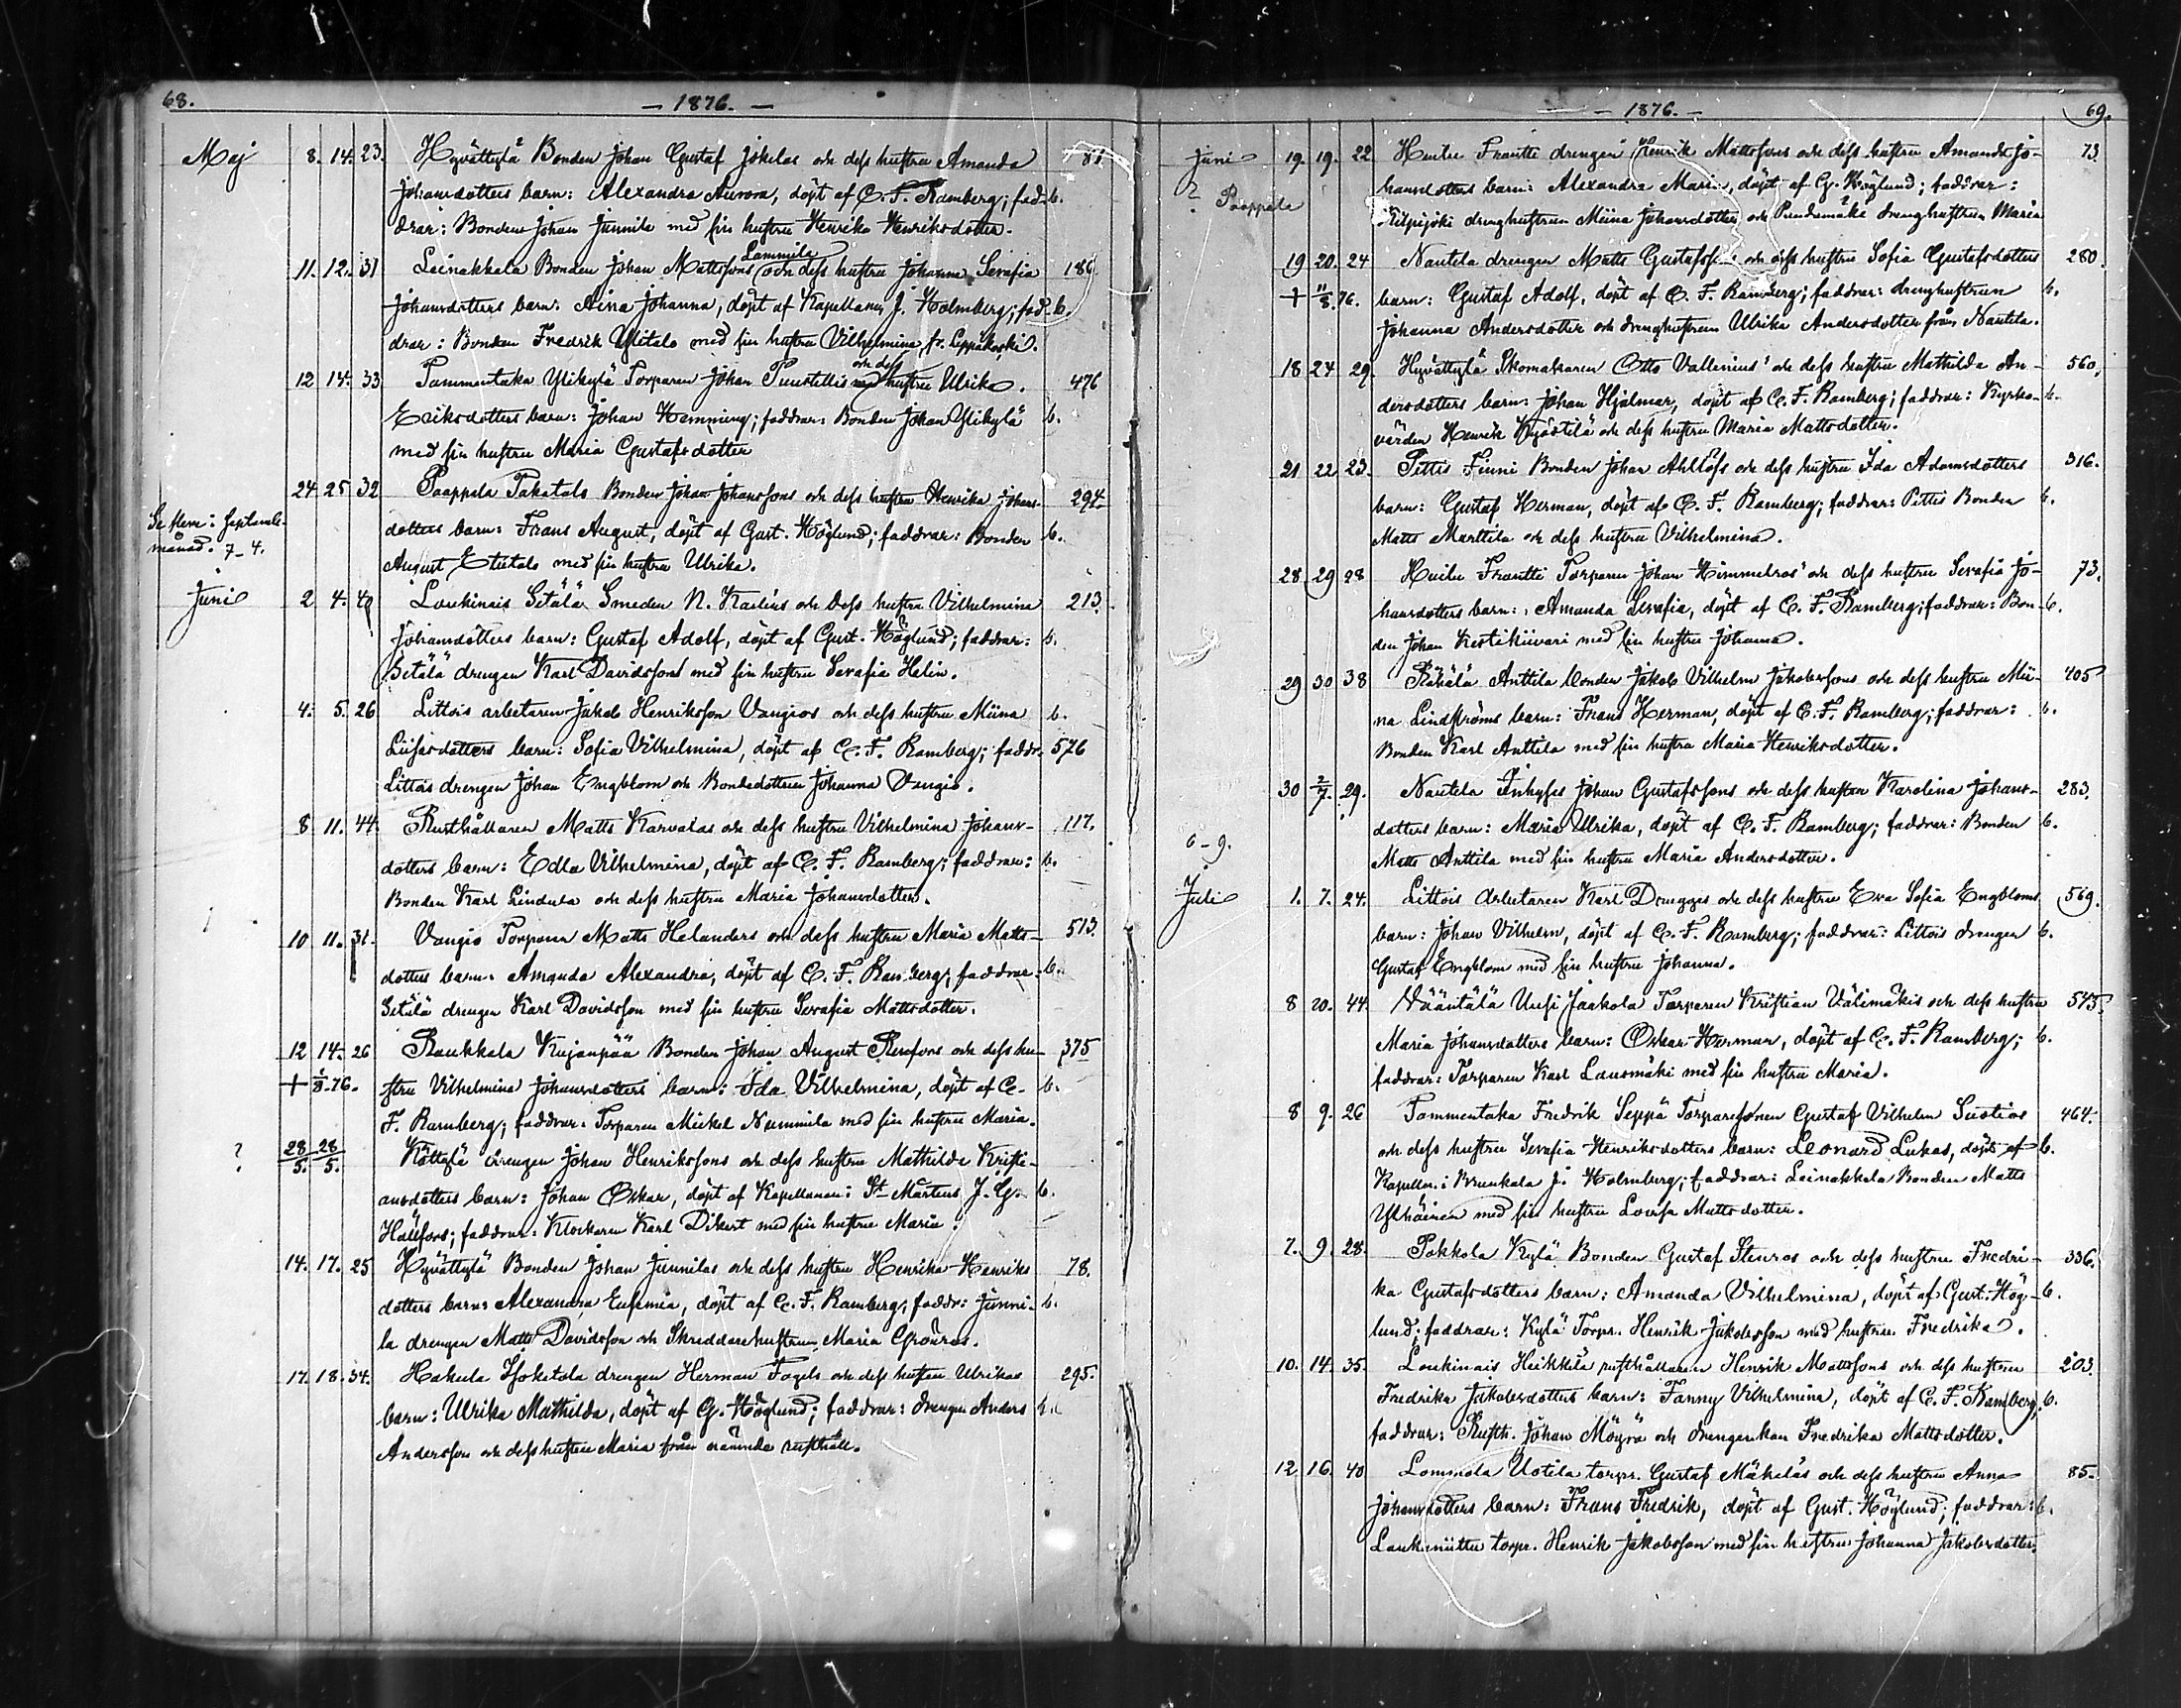 68.
— 1876. —
Maj 8. 14. 23. Hyvättylä Bonden Johan Gustaf Jokelas och dess hustru Amanda 81
Johansdotters barn: Alexandra Aurora, döpt af C. F. Ramberg; fad- b.
drar: Bonden Johan Junnila med sin hustru Henrika Henriksdotter.
Lammila
11. 12. 31 Leinakkala Bonden Johan Mattssons och dess hustru Johanna Serafia 186
Johansdotters barn: Aina Johanna, döpt af Kapellanen J. Holmberg; fad- b.
drar: Bonden Fredrik Ylitalo med sin hustru Vilhelmina fr. Leppäkoski.
och dess
12 14. 33 Tammentaka Ylikylä Torparen Johan Tuustellis med hustru Ulrika 476
Eriksdotters barn: Johan Hemming; faddrar: Bonden Johan Ylikylä b.
med sin hustru Maria Gustafsdotter
24 25 32 Paappala Takatalo Bonden Johan Johanssons och dess hustru Henrika Johans- 294.
Se flere i September
månad. 7–4.
dotters barn: Frans August, döpt af Gust. Höglund; faddrar: Bonden b.
August Etutalo med sin hustru Ulrika.
Juni 2 4. 40 Loukinais Setälä Smeden N. Karlins och dess hustru Vilhelmina 213.
Johansdotters barn: Gustaf Adolf, döpt af Gust. Höglund; faddrar: b.
Setälä drengen Karl Davidsson med sin hustru Serafia Helin.
4. 5. 26 Littois arbetaren Jakob Henriksson Vangios och dess hustru Miina b.
Liisasdotters barn: Sofia Vilhelmina, döpt af C. F. Ramberg; faddr. 576
Littois drengen Johan Engblom och Bondedottren Johanna Vangio.
8 11. 44 Rusthållaren Matts Karvalas och dess hustru Vilhelmina Johans- 117.
dotters barn: Edla Vilhelmina, döpt af C. F. Ramberg; faddrar: b.
Bonden Karl Lindula och dess hustru Maria Johansdotter.
10 11. 31. Vangio Torparen Matts Helanders och dess hustru Maria Matts- 513.
dotters barn: Amanda Alexandra, döpt af C. F. Ramberg; faddrar: b.
Setälä drengen Karl Davidsson med sin hustru Serafia Mattsdotter.
12 14. 26 Raukkala Kujanpää Bonden Johan August Renfors och dess hu- 375
+ 1/8. 76. stru Vilhelmina Johansdotters barn: Ida Vilhelmina, döpt af C. b.
F. Ramberg; faddrar: Torparen Mickel Nummila med sin hustru Maria.
? 28/5. 28/5. Köttylä drengen Johan Henrikssons och dess hustru Mathilda Kristi-
ansdotters barn: Johan Oskar, döpt af Kapellanen i St Mårtens J. G. b.
Hällfors; faddrar: Klockaren Karl Dikert med sin hustru Maria.
14. 17. 25 Hyvättylä Bonden Johan Junnilas och dess hustru Henrika Henriks 78.
dotters barn: Alexandra Eufemia, döpt af C. F. Ramberg; faddr: Junni- b.
la drengen Matts Davidsson och Skreddarehustrun Maria Grönros.
17. 18. 34. Hakula Isoketola drengen Herman Fogels och dess hustru Ulrikas 295.
barn: Ulrika Mathilda, döpt af G. Höglund; faddrar: drengen Anders b.
Andersson och dess hustru Maria från nämnda rusthåll.
— 1876. —
69.
Juni 19. 19. 22 Huilu Frantti drengen Henrik Mattssons och dess hustru Amanda Jo- 73.
? Paappala
hansdotters barn: Alexandra Maria, döpt af G. Höglund; faddrar:
Kilpijoki drenghustrun Miina Johansdotter och drenghustrun Maria
19 20. 24 Nautela drengen Matts Gustafssons och dess hustru Sofia Gustafsdotters 280.
+ 11/8. 76. barn: Gustaf Adolf, döpt af C. F. Ramberg; faddrar: drenghustrun b.
Johanna Andersdotter och drenghustrun Ulrika Andersdotter från Nautela.
18 24 29. Hyvättylä Skomakaren Otto Vallenius' och dess hustru Mathilda An- 560.
dersdotters barn: Johan Hjalmar, döpt af C. F. Ramberg; faddrar: Kyrko- b.
värden Henrik Kyöstilä och dess hustru Maria Mattsdotter.
21 22 23. Pettis Finni Bonden Johan Ahllöfs och dess hustru Ida Adamsdotters 316.
barn: Gustaf Herman, döpt af C. F. Ramberg; faddrar: Pettis Bonden b.
Matts Marttila och dess hustru Vilhelmina.
28. 29 28 Huilu Frantti Torparen Johan Himmelroos' och dess hustru Serafia Jo- 73.
hansdotters barn: Amanda Serafia, döpt af C. F. Ramberg; faddrar: Bon- b.
den Johan Kestikiivari med sin hustru Johanna.
29 30 38 Räkälä Anttila bonden Jakob Vilhelm Jakobssons och dess hustru Mii- 405
na Lindströms barn: Frans Herman, döpt af C. F. Ramberg; faddrar: b.
Bonden Karl Anttila med sin hustru Maria Henriksdotter.
30 2/7. 29. Nautela Inhyses Johan Gustafssons och dess hustru Karolina Johans- 283.
dotters barn: Maria Ulrika, döpt af C. F. Ramberg; faddrar: Bonden b.
6–9.
Matts Anttila med sin hustru Maria Andersdotter.
Juli 1. 7. 24. Littois Arbetaren Karl Drugges och dess hustru Eva Sofia Engbloms 569.
barn: Johan Vilhelm, döpt af C. F. Ramberg; faddrar: Littois drengen b.
Gustaf Engblom med sin hustru Johanna.
8 20. 44. Vääntälä Uusi Jaakola Torparen Kristian Välimäkis och dess hustru 545.
Maria Johansdotters barn: Oskar Herman, döpt af C. F. Ramberg; b.
faddrar: Torparen Karl Lausmäki med sin hustru Maria.
8 9. 26 Tammentaka Fredrik Seppä Torparesonen Gustaf Vilhelm Suotios 464.
och dess hustru Serafia Henriksdotters barn: Leonard Lukas, döpt af b.
Kapellan. i Brunkala J. Holmberg; faddrar: Leinakkala Bonden Matts
Ylhäinen med sin hustru Lovisa Mattsdotter.
7. 9. 28. Pokkola Kylä Bonden Gustaf Stenros och dess hustru Fredri- 336.
ka Gustafsdotters barn: Amanda Vilhelmina, döpt af Gust. Hög- b.
lund; faddrar: Kylä Torpr. Henrik Jakobsson med hustrun Fredrika.
10. 14. 35. Loukinais Heikkilä rusthållaren Henrik Mattssons och dess hustru 203.
Fredrika Jakobsdotters barn: Fanny Vilhelmina, döpt af C. F. Ramberg; b.
faddrar: Rusth. Johan Möyrö och drengenkan Fredrika Mattsdotter.
12. 16. 40 Lommola Uotila torpr. Gustaf Mäkeläs och dess hustru Anna 85.
Johansdotters barn: Frans Fredrik, döpt af Gust. Höglund; faddrar: b.
torpr. Henrik Jakobsson med sin hustru Johanna Jakobsdotter.